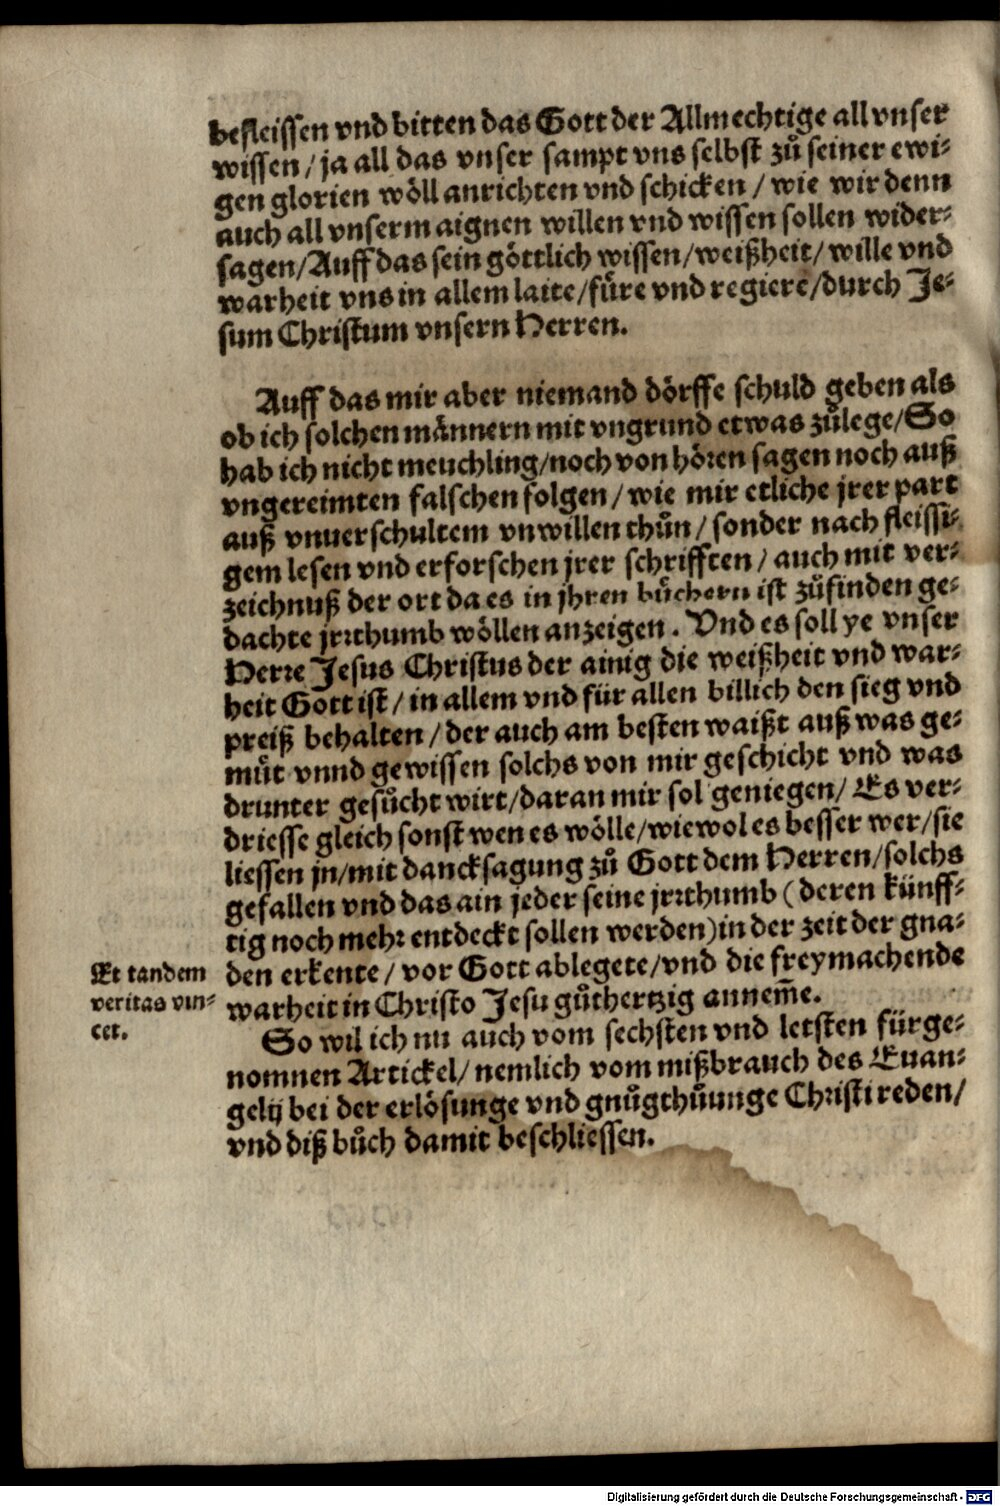 befleissen vnd bitten das Gott der Allmechtige all vnser
wissen / ja all das vnser sampt vns selbst zů seiner ewi⸗
gen glorien wöll anrichten vnd schicken / wie wir denn
auch all vnserm aignen willen vnd wissen sollen wider⸗
sagen/Auff das sein göttlich wissen/weißheit/ wille vnd
warheit vns in allem laite/füre vnd regiere/durch Je⸗
sum Christum vnsern Herren.
Auff das mir aber niemand dörffe schuld geben als
ob ich solchen männern mit vngrund etwas zůlege/So
hab ich nicht meuchling/noch von hören sagen noch auß
vngereimten falschen folgen / wie mir etliche jrer part
auß vnuerschultem vnwillen thůn / sonder nach fleissi⸗
gem lesen vnd erforschen jrer schrifften / auch mit ver⸗
zeichnuß der ort da es in jhren bůchern ist zůfinden ge⸗
dachte jrrthumb wöllen anzeigen. Vnd es soll ye vnser
Herre Jesus Christus der ainig die weißheit vnd war⸗
heit Gott ist / in allem vnd für allen billich den sieg vnd
preiß behalten / der auch am besten waißt auß was ge⸗
můt vnnd gewissen solchs von mir geschicht vnd was
drunter gesůcht wirt/daran mir sol geniegen/ Es ver⸗
driesse gleich sonst wen es wölle/wiewol es besser wer/sie
liessen jn/mit dancksagung zů Gott dem Herren/solchs
gefallen vnd das ain jeder seine jrrthumb (deren künff⸗
tig noch mehr entdeckt sollen werden) in der zeit der gna⸗
den erkente / vor Gott ablegete/vnd die freymachende
warheit in Christo Jesu gůthertzig annem̄e.
Et tandem
veritas vin⸗
cet.
So wil ich nu auch vom sechsten vnd letsten fürge⸗
nomnen Artickel/ nemlich vom mißbrauch des Euan⸗
gelij bei der erlösunge vnd gnůgthůunge Christi reden/
vnd diß bůch damit beschliessen.
Digitalisierung gefördert durch die Deutsche Forschungsgemeinschaft - DFG